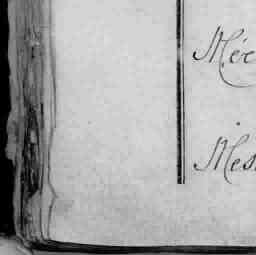 Méc
Mes